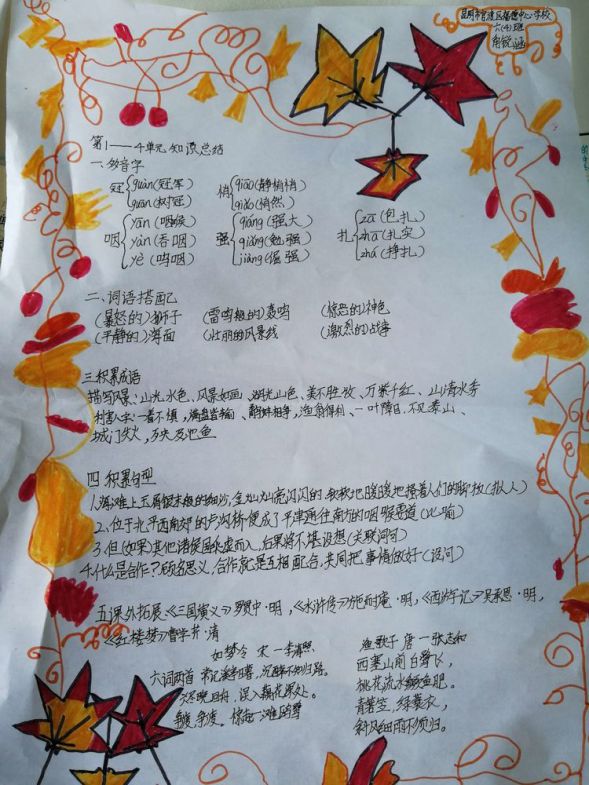 昆明市官渡区福德中心学校
六(4)班
第1——4单元知识总结
一、多音字
冠 guàn(冠军) 悄 qiāo(静悄悄)
guan(树冠) qiǎo(悄然)
咽 yān(咽喉) 强 qiáng(强大) 扎 zā(包扎)
yàn(吞咽) qiǎng(勉强) zhā(扎实)
yè(呜咽) jiàng(倔强) zhá(挣扎)
二、词语搭配
(暴怒的)狮子 (雷鸣般的)轰鸣 (惊恐的)神色
(平静的)海面 (壮丽的)风景线 (激烈的)战争
三积累成语
描写风景:山光水色、风景如画、湖光山色、美不胜收、万紫千红、山清水秀
利害八字:一着不慎,满盘皆输、鹬蚌相争,渔翁得利、一叶障目,不见泰山、
城门失火,殃及池鱼
四 积累句型
1、海滩上五屑银末般的细沙,金灿灿亮闪闪的,软软地暖暖地搔着人们的脚板(拟人)
2、位于北平西南郊的卢沟桥便成了平津通往南方的咽喉要道(比喻)
3、但(如果)其他诸侯国乘虚而入,后果将不堪设想(关联词句)
4、什么是合作?顾名思义,合作就是互相配合,共同把事情做好(设问)
五课外拓展:《三国演义》罗贯中·明,《水浒传》施耐庵·明,《西游记》吴承恩·明,
《红楼梦》曹雪芹·清
如梦令 宋一李清照 渔歌子 唐一张志和
六词两首 常记溪亭日暮,沉醉不知归路。 西塞山前白鹭飞,
兴尽晚回舟,误入藕花深处。 桃花流水鳜鱼肥。
争渡,争渡。惊起一滩鸥鹭 青箬笠,绿蓑衣,
斜风细雨不须归。